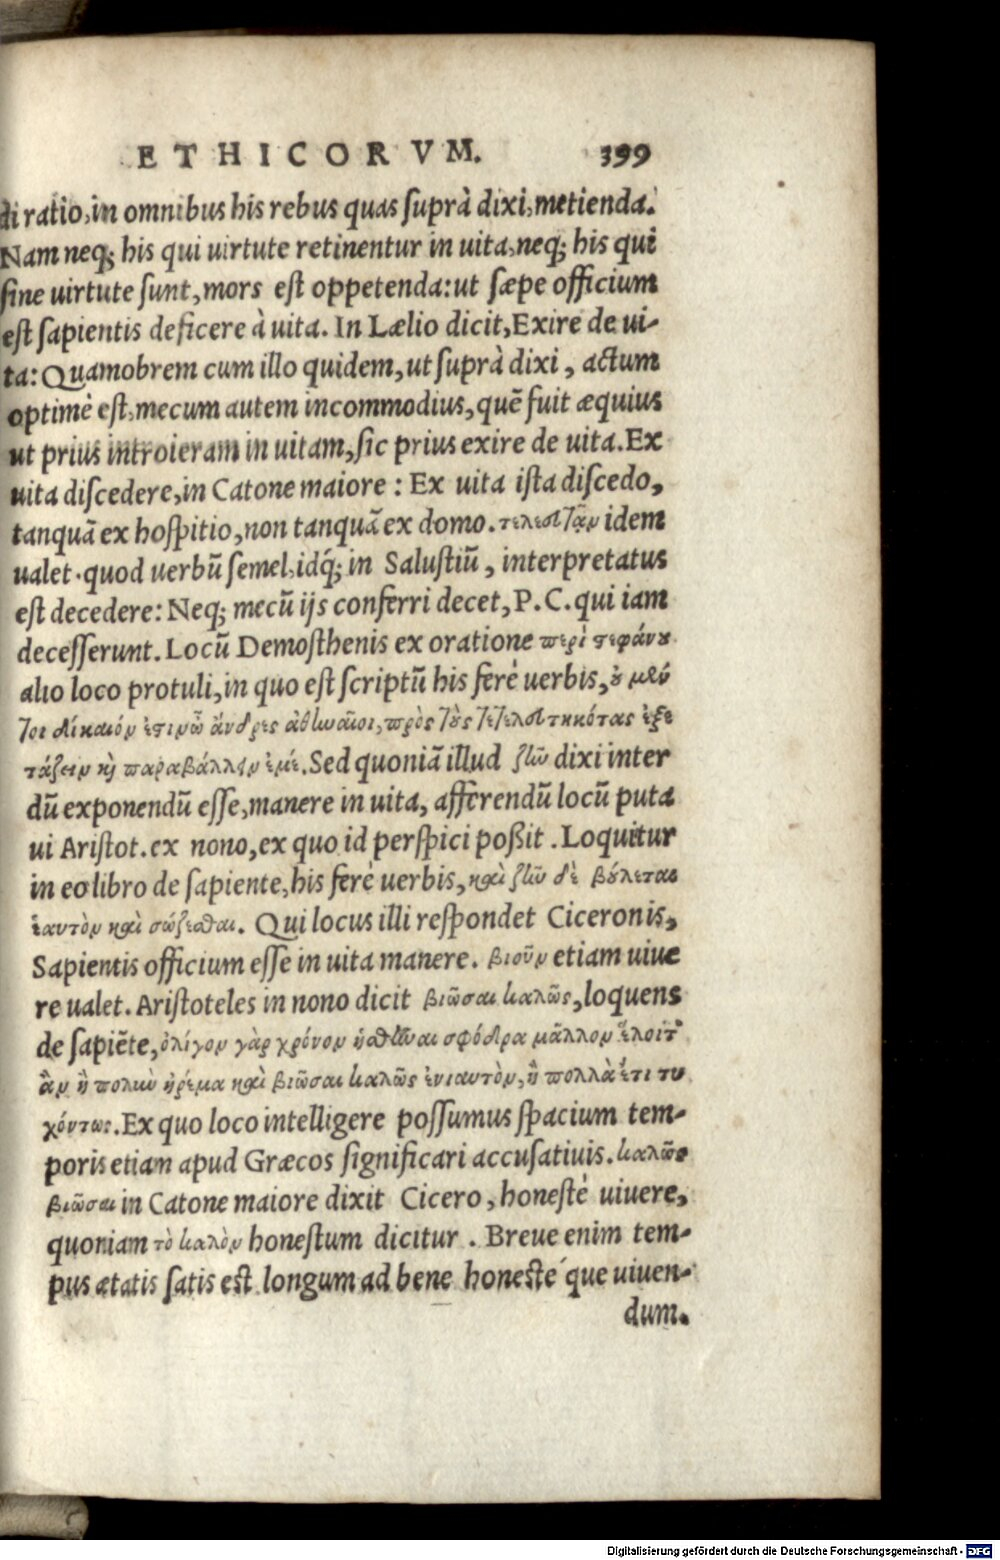 ETHICORVM. 399
di ratio, in omnibus his rebus quas suprà dixi, metienda.
Nam neq; his qui uirtute retinentur in uita, neq; his qui
sine uirtute sunt, mors est oppetenda: ut sæpe officium
est sapientis deficere à uita. In Lælio dicit, Exire de ui-
ta: Quamobrem cum illo quidem, ut suprà dixi, actum
optimè est, mecum autem incommodius, quē fuit æquius
ut prius introieram in uitam, sic prius exire de uita. Ex
uita discedere, in Catone maiore: Ex uita ista discedo,
tanquā ex hospitio, non tanquā ex domo. τελευτᾷν idem
ualet. quod uerbū semel, idq́; in Salustiū, interpretatus
est decedere: Neq; mecū ijs conferri decet, P. C. qui iam
decesserunt. Locū Demosthenis ex oratione περὶ στεφάνου
alio loco protuli, in quo est scriptū his ferè uerbis, ὀ μέν
τοι δίκαιόν ἐστιν ὦ ἄνδρες ἀθηναῖοι, πρὸς τοὺς τετελευτηκότας ἐξε
τάζειν καὶ παραβάλλειν ἐμέ. Sed quoniā illud ζῆν dixi inter
dū exponendū esse, manere in uita, afferendū locū puta
ui Aristot. ex nono, ex quo id perspici poßit. Loquitur
in eo libro de sapiente, his ferè uerbis, καὶ ζῆν δὲ βούλεται
ἑαυτὸν καὶ σώζεσθαι. Qui locus illi respondet Ciceronis,
Sapientis officium esse in uita manere. βιοῦν etiam uiue
re ualet. Aristoteles in nono dicit βιῶσαι καλῶς, loquens
de sapiēte, ὀλίγον γὰρ χρόνον ἡσθῆναι σφόδρα μᾶλλον ἕλοιτ᾽
ἂν ἢ πολὺν ἠρέμα καὶ βιῶσαι καλῶς ἐνιαυτὸν, ἢ πολλὰ ἔτι τυ
χόντως. Ex quo loco intelligere possumus spacium tem-
poris etiam apud Græcos significari accusatiuis. καλῶς
βιῶσαι in Catone maiore dixit Cicero, honestè uiuere,
quoniam τὸ καλὸν honestum dicitur. Breue enim tem-
pus ætatis satis est longum ad bene honestè que uiuen-
dum.
Digitalisierung gefördert durch die Deutsche Forschungsgemeinschaft - DFG